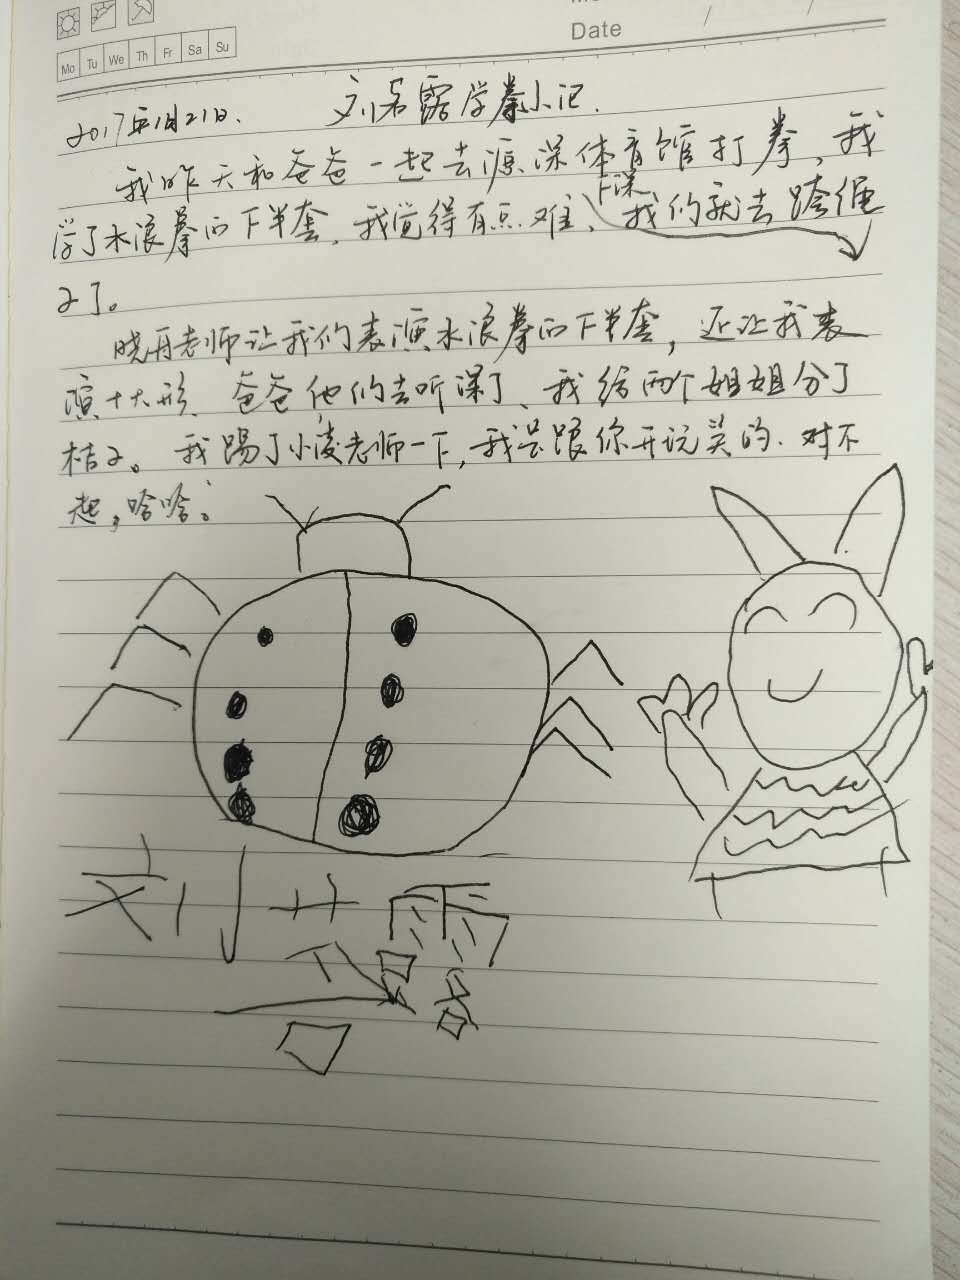 Date / /
Mo Tu We Th Fr Sa Su
2017年1月21日. 刘若露学拳小记.
我昨天和爸爸一起去源深体育馆打拳,我
学了水浪拳的下半套,我觉得有点难、下课我们就去跨绳
子了。
晓丹老师让我们表演水浪拳的下半套,还让我表
演十大形、爸爸他们去听课了、我给两个姐姐分了
桔子。我踢了小凌老师一下,我是跟你开玩笑的.对不
起,哈哈。
刘若露